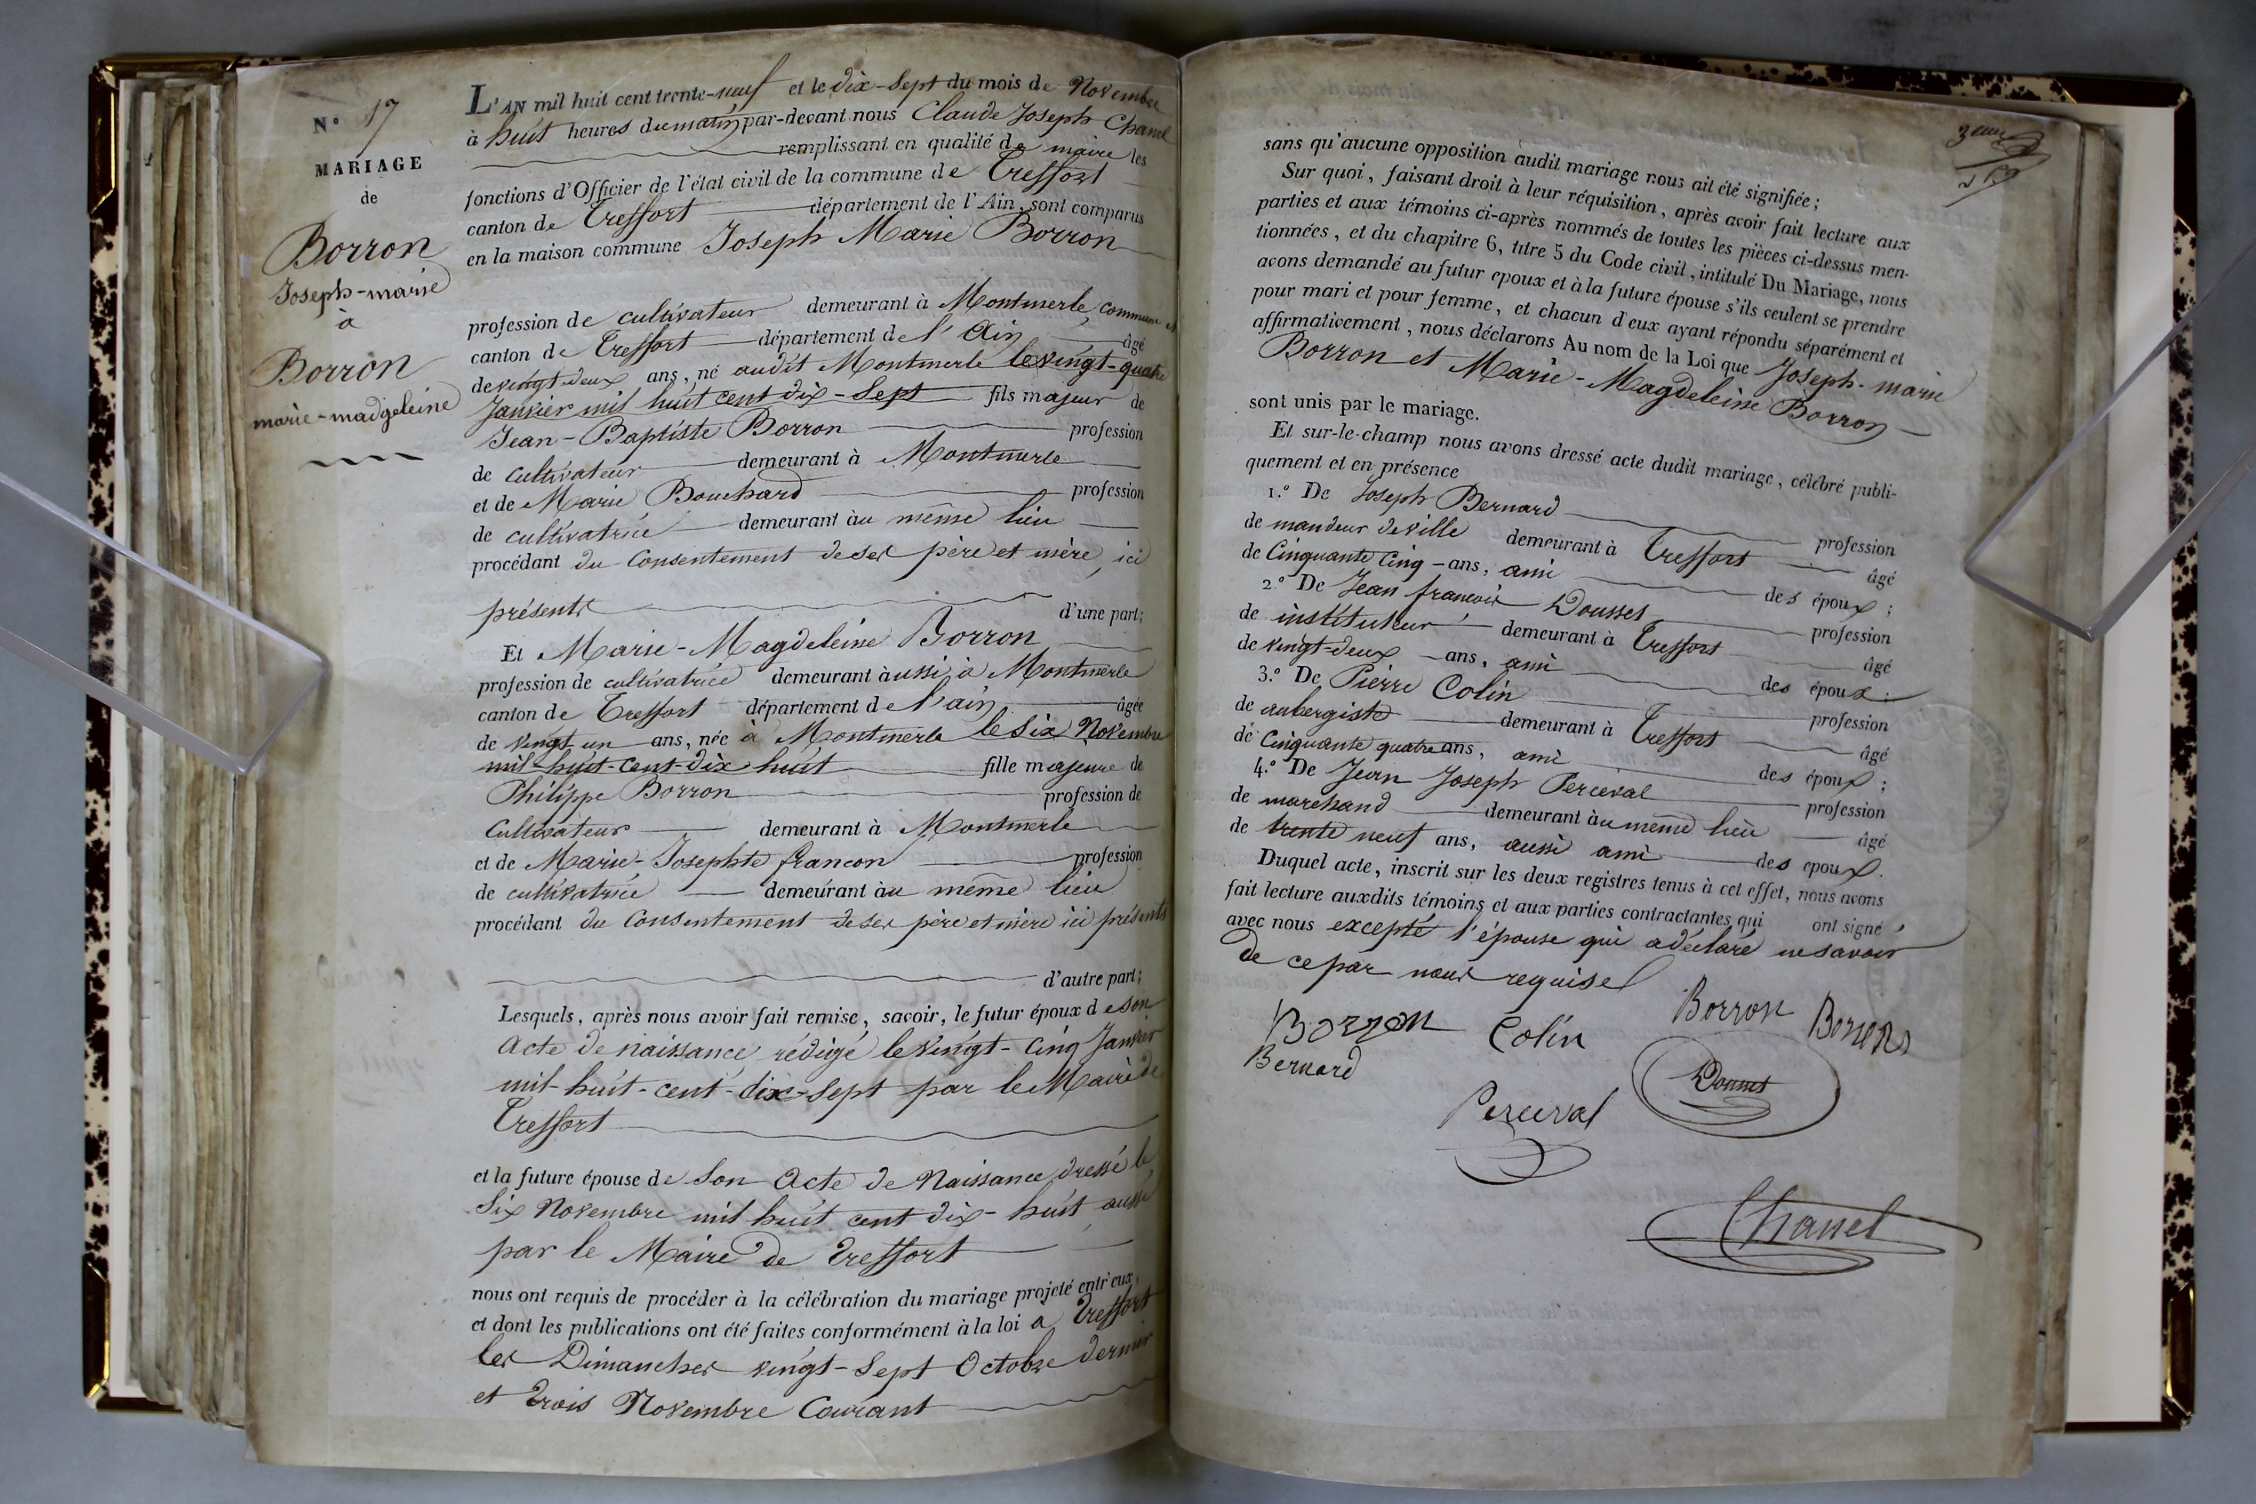 N.° 17
MARIAGE
de
Borron
Joseph-marie
à
Borron
marie-madgeleine
L'AN mil huit cent trente-neuf et le dix-Sept du mois de Novembre
à huit heures du matin par-devant nous Claude Joseph Chanel
remplissant en qualité de maire les
fonctions d'Officier de l'état civil de la commune de Treffort
canton de Treffort département de l'Ain, sont comparus
en la maison commune Joseph Marie Borron
profession de cultivateur demeurant à Montmerle, commune et
canton de Treffort département de l'Ain âgé
de vingt-deux ans, né audit Montmerle le vingt-quatre
Janvier mil huit cent dix-Sept fils majeur de
Jean-Baptiste Borron profession
de cultivateur demeurant à Montmerle
et de Marie Bouchard profession
de cultivatrice demeurant àu même lieu
procédant du Consentement de ses père et mère, ici
présents d'une part;
Et Marie-Magdeleine Borron
profession de cultivatrice demeurant àussi à Montmerle
canton de Treffort département de l'ain âgée
de vingt un ans, née à Montmerle le Six Novembre
mil-huit-cent-dix huit fille majeure de
Philippe Borron profession de
Cultivateur demeurant à Montmerle
et de Marie-Josephte francon profession
de cultivatrice demeurant àu même lieu
procédant du Consentement de ses père et mère ici présents
d'autre part;
Lesquels, après nous avoir fait remise, savoir, le futur époux de son
Acte de naissance, rédigé le vingt-cinq Janvier
mil-huit-cent-dix-sept par le Maire de
Treffort
et la future épouse de Son Acte de Naissance dressé le
Six Novembre mil huit cent dix-huit aussi
par le Maire de Treffort
nous ont requis de procéder à la célébration du mariage projeté entr'eux,
et dont les publications ont été faites conformément à la loi a Treffort
les Dimanches vingt-Sept Octobre dernier
et trois Novembre Courant
sans qu'aucune opposition audit mariage nous ait été signifiée;
Sur quoi, faisant droit à leur réquisition, après avoir fait lecture aux
parties et aux témoins ci-après nommés de toutes les pièces ci-dessus men-
tionnées, et du chapitre 6, titre 5 du Code civil, intitulé Du Mariage, nous
avons demandé au futur epoux et à la future épouse s'ils veulent se prendre
pour mari et pour femme, et chacun d'eux ayant répondu séparément et
affirmativement, nous déclarons Au nom de la Loi que Joseph-marie
Borron et Marie-Magdeleine Borron
sont unis par le mariage.
Et sur-le-champ nous avons dressé acte dudit mariage, célébré publi-
quement et en présence
1.° De Joseph Bernard profession
de mandeur de ville demeurant à Treffort âgé
de Cinquante Cinq ans, ami des époux;
2.° De Jean françois Dousset profession
de instituteur demeurant à Treffort âgé
de vingt-deux ans, ami des époux;
3.° De Pierre Colin profession
de aubergiste demeurant à Treffort âgé
de Cinquante quatre ans, ami des époux;
4.° De Jean Joseph Perceval profession
de marchand demeurant àu même lieu âgé
de trente neuf ans, aussi ami des epoux.
Duquel acte, inscrit sur les deux registres tenus à cet effet, nous avons
fait lecture auxdits témoins et aux parties contractantes qui ont signé
avec nous excepté l'épouse qui a déclaré ne savoir
de ce par nous requise
Borron Colin Borron Borron
Bernard
Dousset
Perceval
Chanel